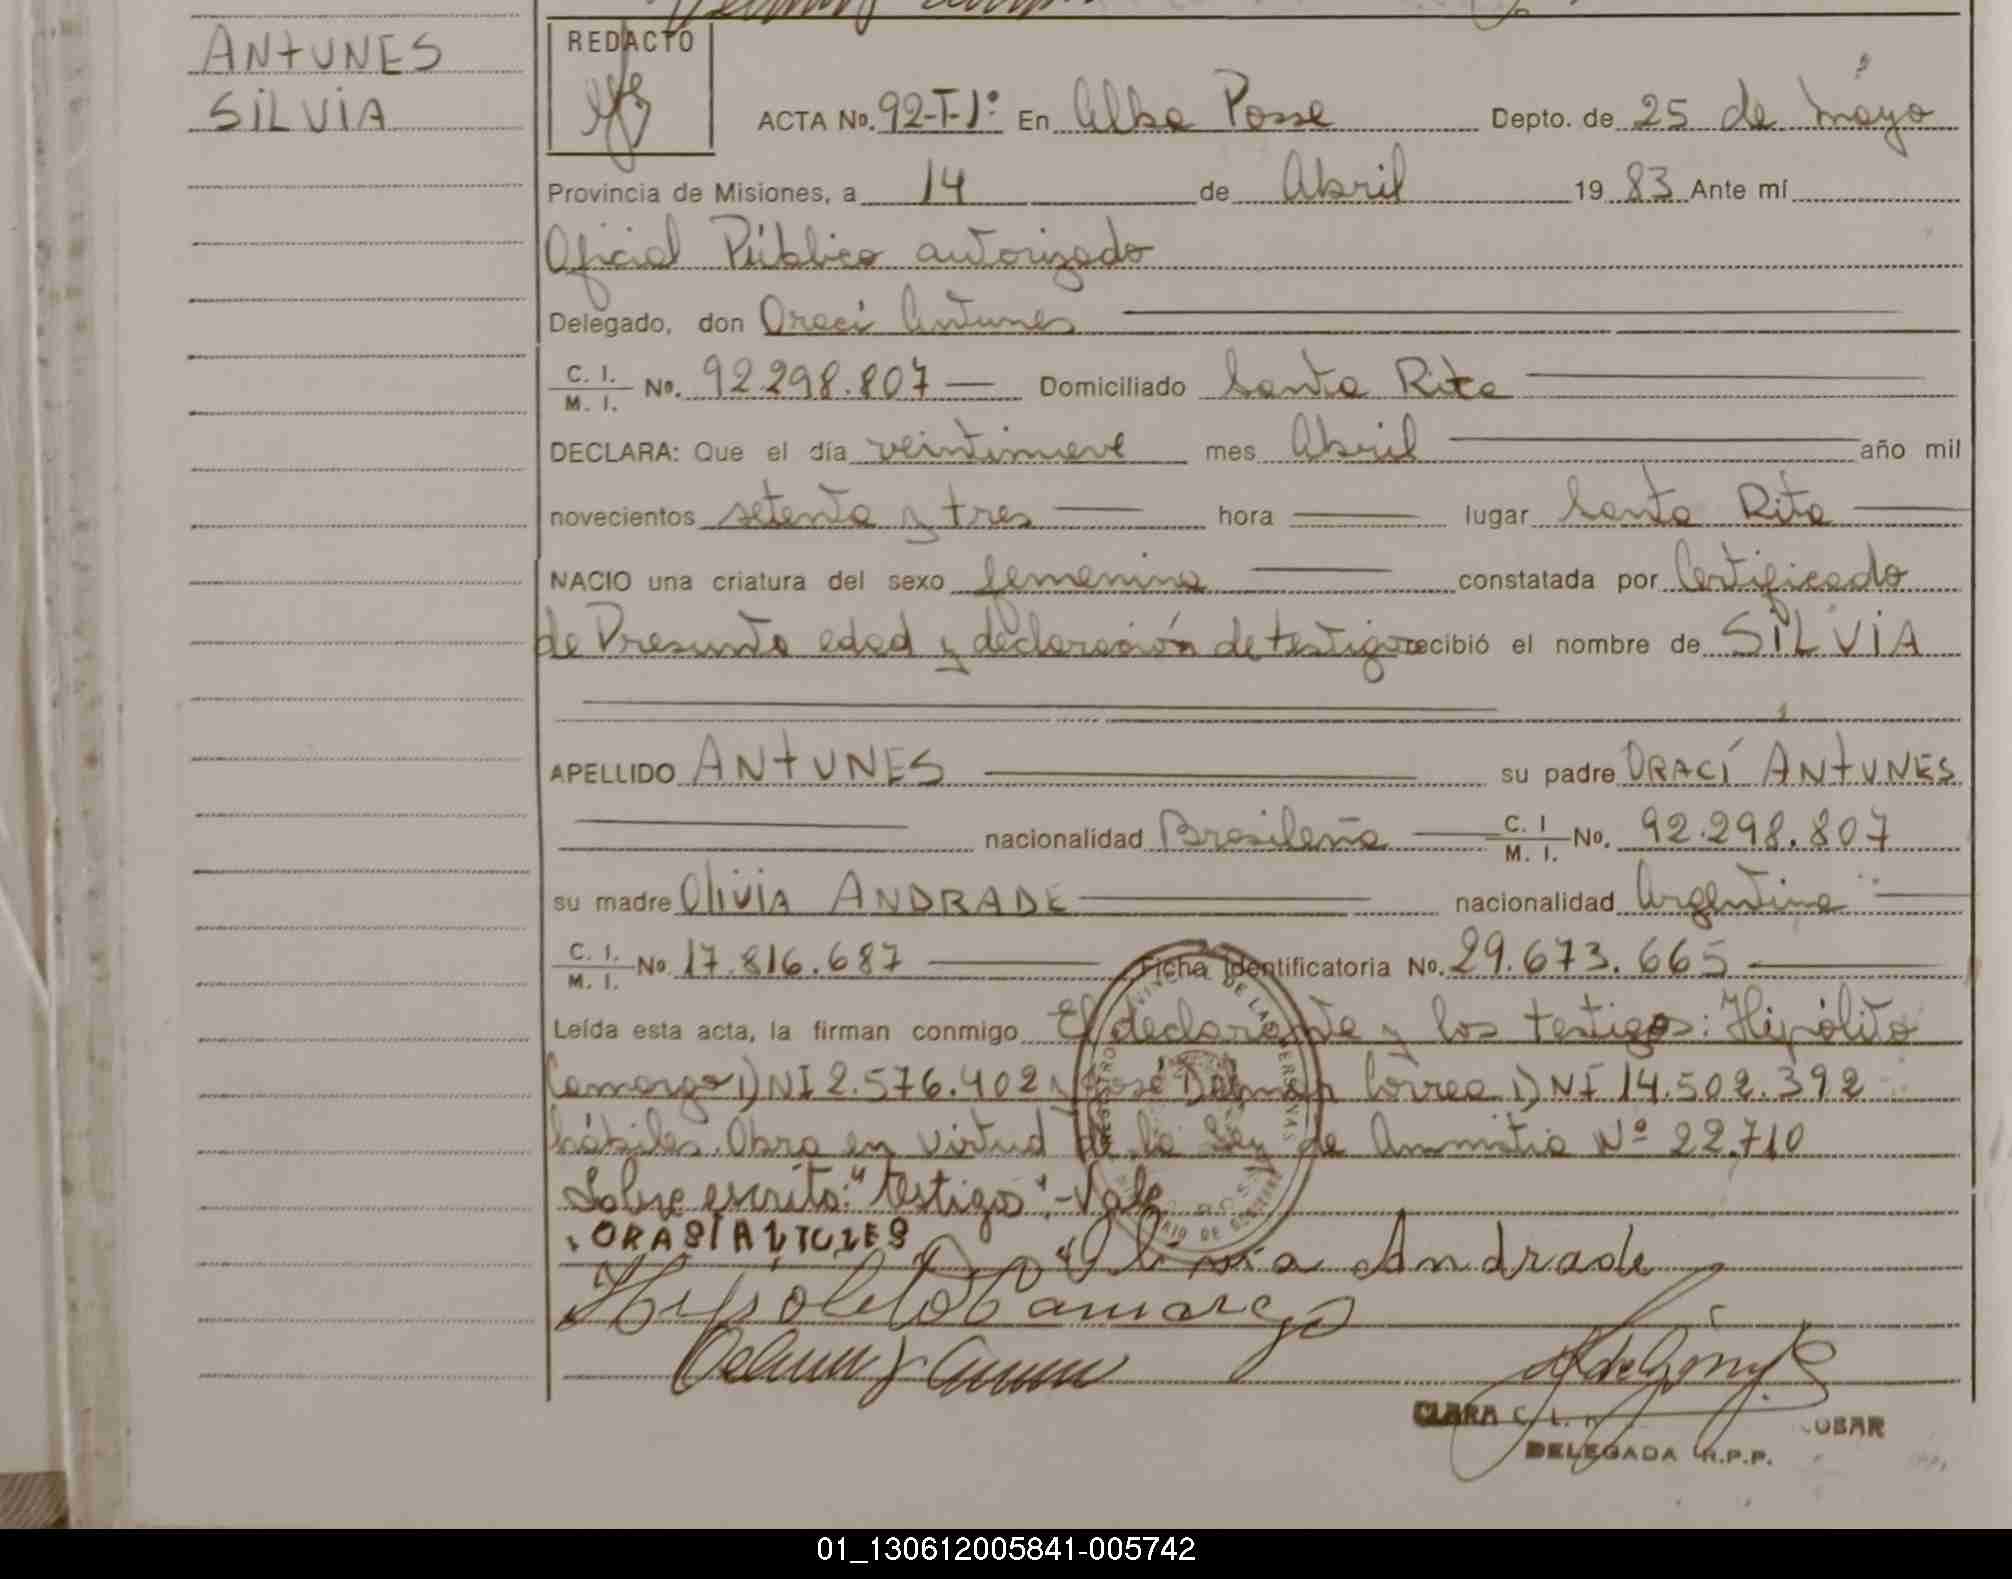 ANTUNES
SILVIA
REDACTO
ACTA No. 92-T-1º En Alba Posse Depto. de 25 de mayo
Provincia de Misiones, a 14 de Abril 19 83 Ante mí
Oficial Público autorizado
Delegado, don Oraci Antunes
C. I. / M. I. No. 92.298.807 — Domiciliado Santa Rita
DECLARA: Que el día veintinueve mes Abril año mil
novecientos setenta y tres hora — lugar Santa Rita
NACIO una criatura del sexo femenino constatada por Certificado
de Presunta edad y declaración de testigo recibió el nombre de SILVIA
APELLIDO ANTUNES su padre ORACÍ ANTUNES
nacionalidad Brasileña C. I / M. I. No. 92.298.807
su madre Olivia ANDRADE nacionalidad Argentina
C. I. / M. I. No. 17.816.687 Ficha Identificatoria No. 29.673.665
Leída esta acta, la firman conmigo El declarante y los testigos: Hipólito
Camargo 1) NI 2.576.402 y José Delmar Correa 1) NI 14.502.392
hábiles. Obra en virtud de la Ley de Amnistia Nº 22.710
Sobre escrito: "testigo".- Vale
ORASI ANTUNES Olivia Andrade
Hipolito Camargo
CLARA C. L. OBAR
DELEGADA R.P.P.
01_130612005841-005742